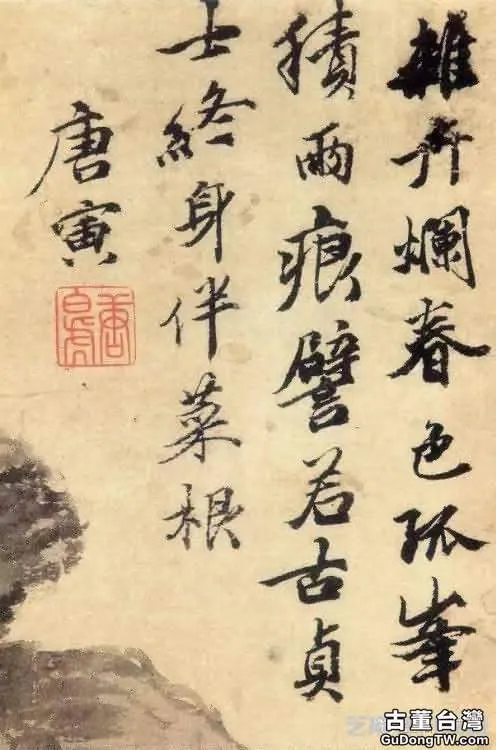 雜卉爛春色孤峯
積雨痕譬若古貞
士終身伴菜根
唐寅
唐白虎
古董台灣
GuDongTW.com